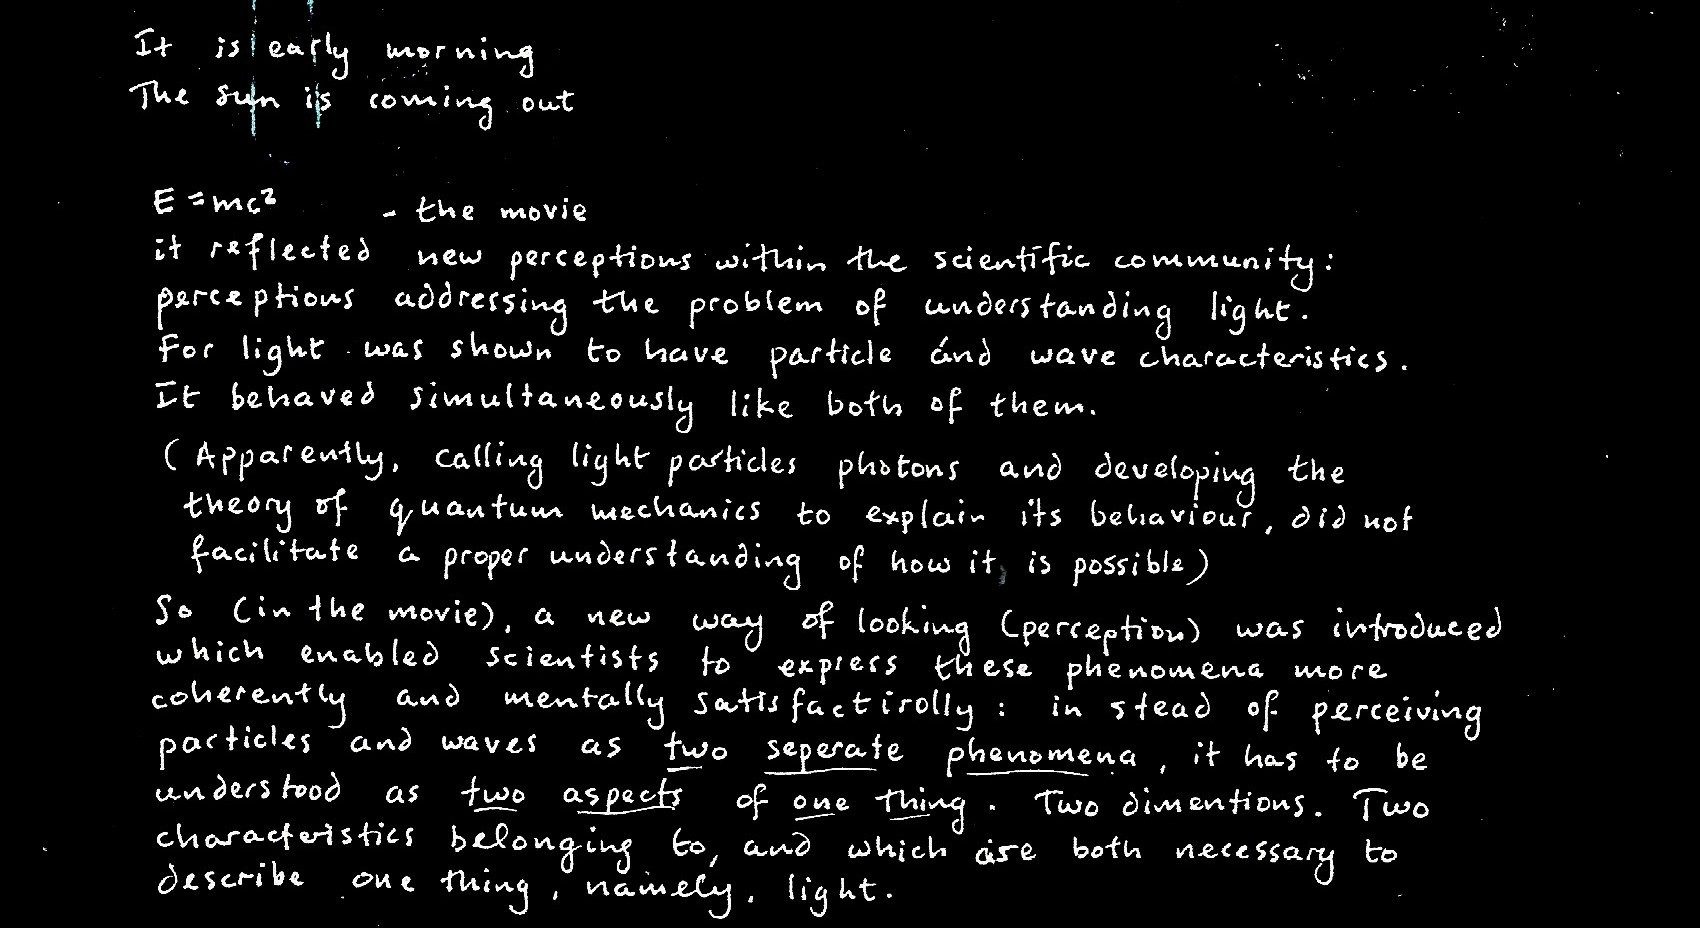 It is early morning
The sun is coming out
E = mc² - the movie
it reflected new perceptions within the scientific community:
perceptions addressing the problem of understanding light.
For light was shown to have particle and wave characteristics.
It behaved simultaneously like both of them.
(Apparently, calling light particles photons and developing the
theory of quantum mechanics to explain its behaviour, did not
facilitate a proper understanding of how it is possible)
So (in the movie), a new way of looking (perception) was introduced
which enabled scientists to express these phenomena more
coherently and mentally satisfactirolly: in stead of perceiving
particles and waves as two seperate phenomena, it has to be
understood as two aspects of one thing. Two dimentions. Two
characteristics belonging to, and which are both necessary to
describe one thing, namely, light.